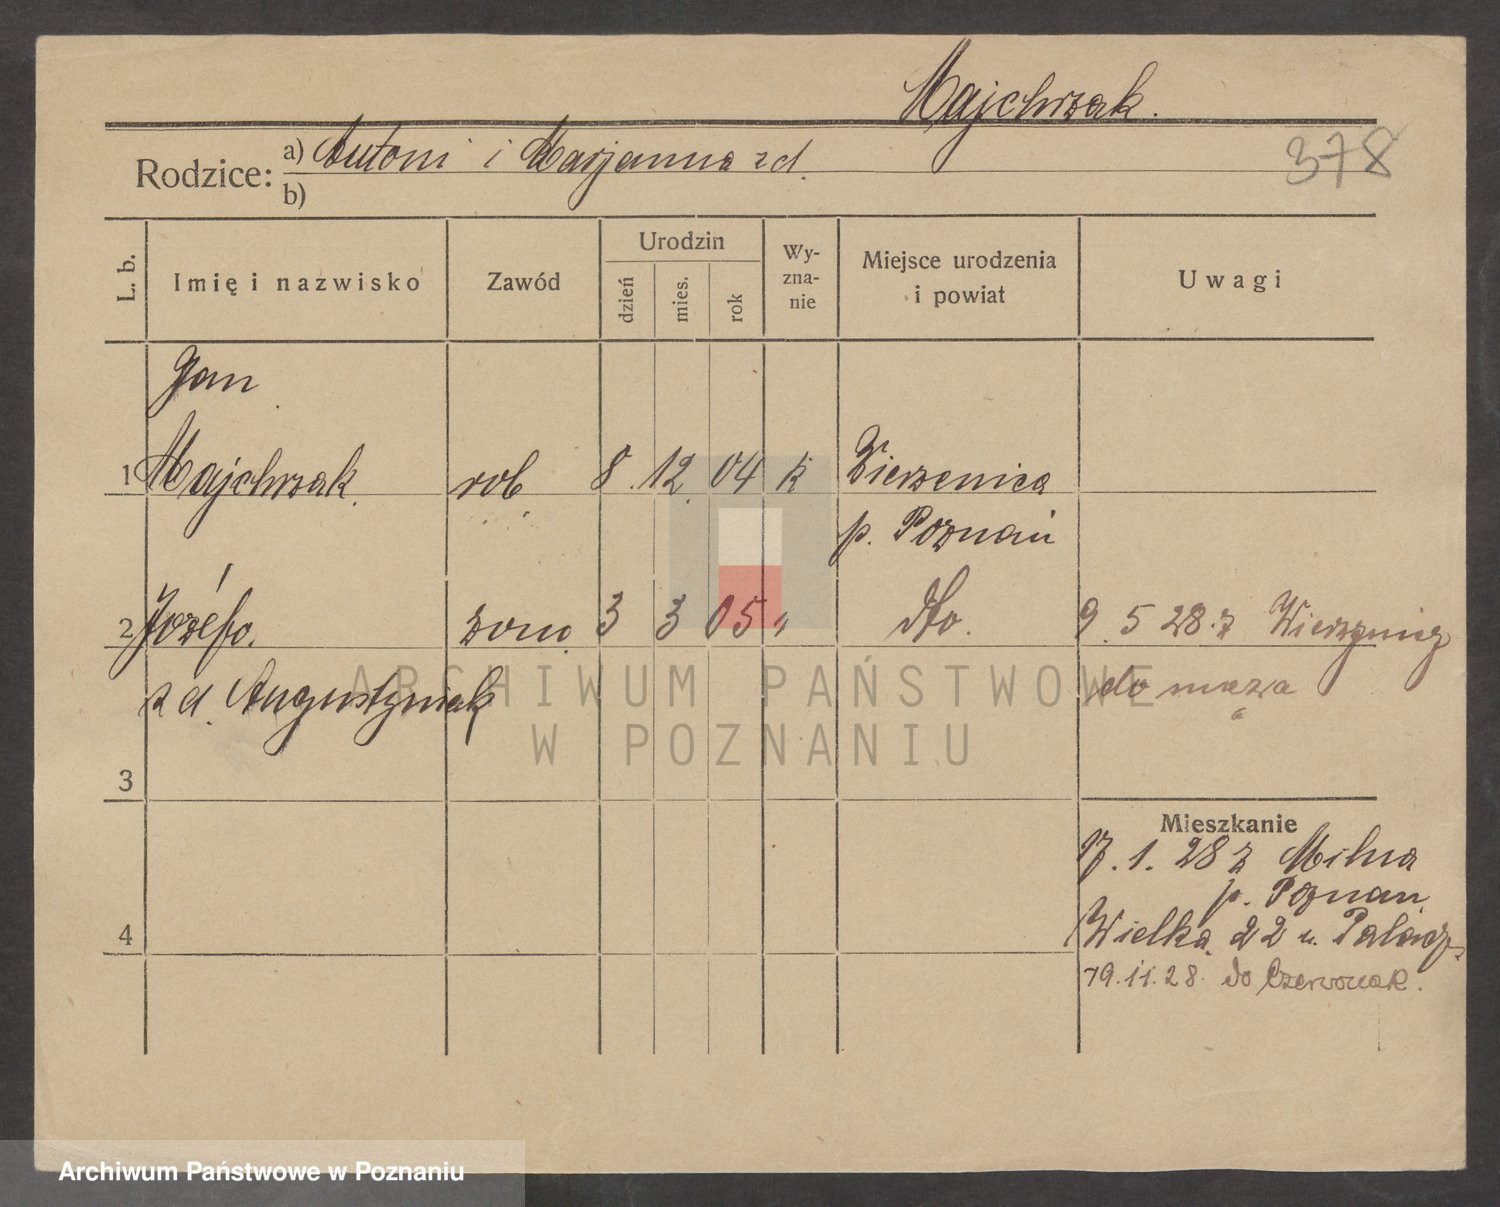 Majchrzak.
378
Rodzice: a) Antoni i Marjanna zd.
b)
L. b. Imię i nazwisko Zawód Urodzin dzień mies. rok Wyznanie Miejsce urodzenia i powiat Uwagi
Jan
1 Majchrzak rob 8. 12. 04 k Wierzenica
p. Poznań
2 Józefa. żona 3 3 05 " dto. 9. 5 28. z Wierzenicy
z d. Augustyniak do męża
3
Mieszkanie
17. 1. 28 z Milna
p. Poznań
4 Wielka 22 u. Palacz
19. 11. 28. do Czerwonak.
ARCHIWUM PAŃSTWOWE
W POZNANIU
Archiwum Państwowe w Poznaniu